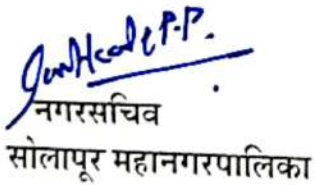 नगरसचिव
सोलापूर महानगरपालिका